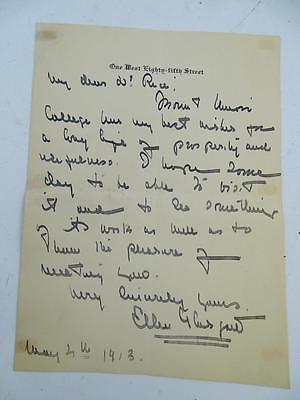 One West Eighty-fifth Street
My dear Dr. Rice:
Mount Union
College has my best wishes for
a long life of prosperity and
usefulness. I hope some
day to be able to visit
it and to see something
of its work as well as to
have the pleasure of
meeting you.
Very sincerely yours,
Ellen Glasgow
May 4th 1913.